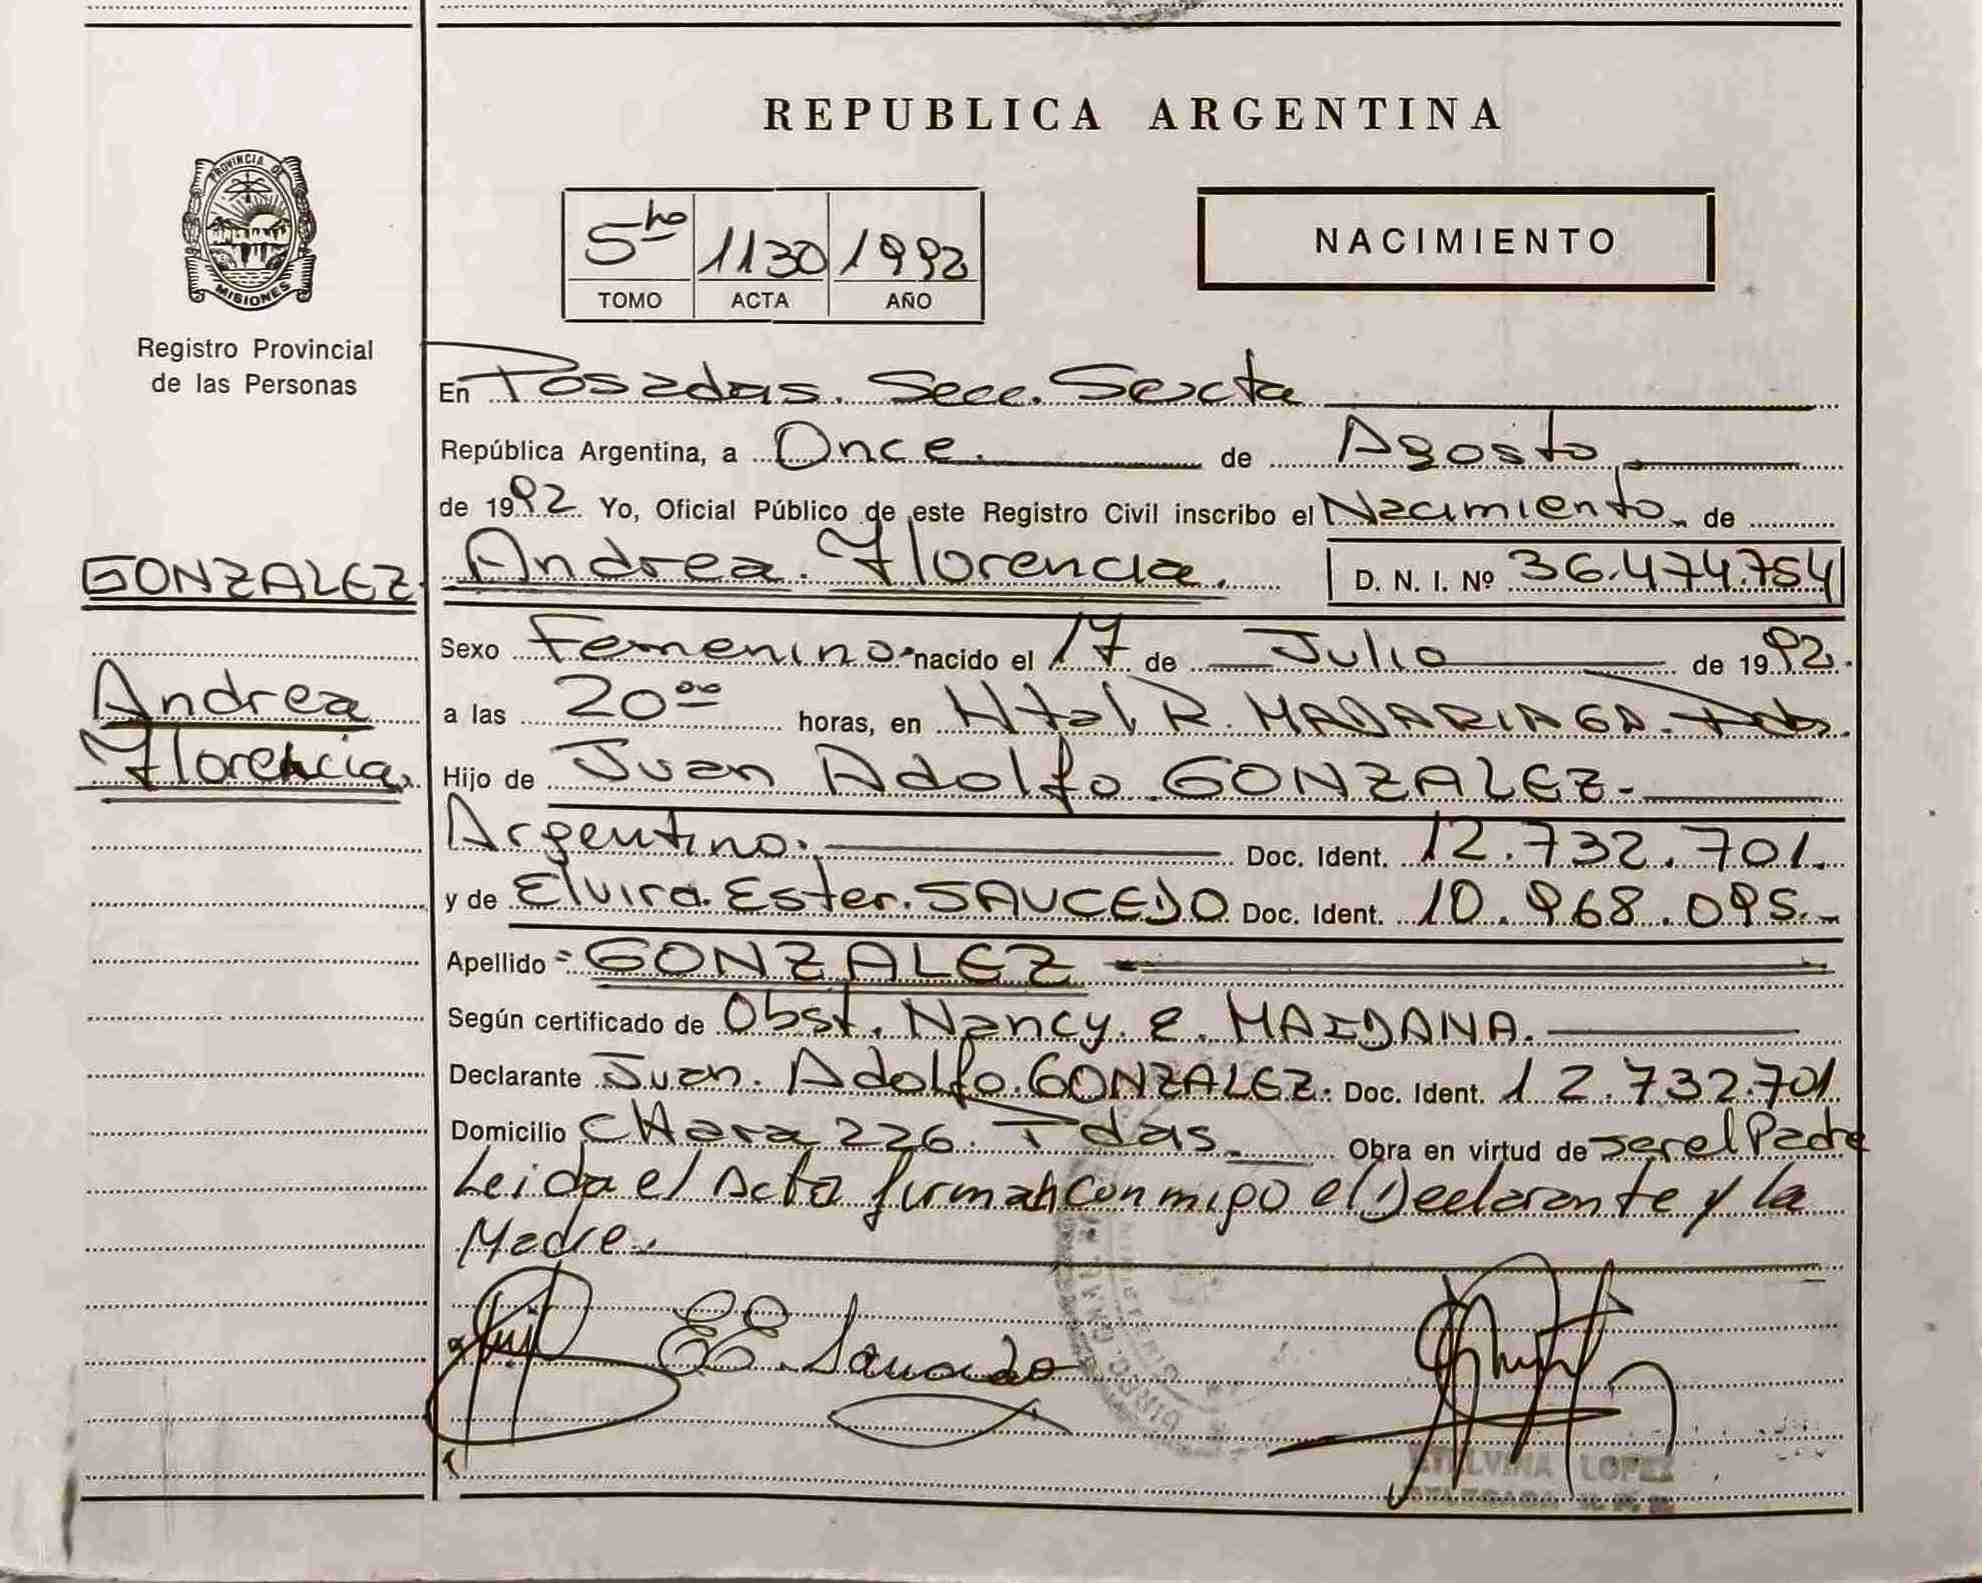 REPUBLICA ARGENTINA
PROVINCIA DE
MISIONES
Registro Provincial
de las Personas
5to 1130 1992
TOMO ACTA AÑO
NACIMIENTO
En Posadas. Secc. Sexta
República Argentina, a Once. de Agosto
de 1992. Yo, Oficial Público de este Registro Civil inscribo el Nacimiento de
GONZALEZ
Andrea
Florencia
Andrea Florencia. D. N. I. Nº 36.474.754
Sexo Femenino nacido el 17 de Julio de 1992.
a las 20 00 horas, en Htal R. MADARIAGA. Pdas.
Hijo de Juan Adolfo GONZALEZ.
Argentino. Doc. Ident. 12.732.701.
y de Elvira Ester SAUCEDO Doc. Ident. 10.968.095.
Apellido = GONZALEZ
Según certificado de Obst. Nancy E. MAIDANA.
Declarante Juan Adolfo GONZALEZ. Doc. Ident. 12.732.701
Domicilio CHacra 226. Pdas. Obra en virtud de ser el Padre
Leida el Acta firman conmigo el Declarante y la
Madre.
EE. Saucedo
LOPEZ